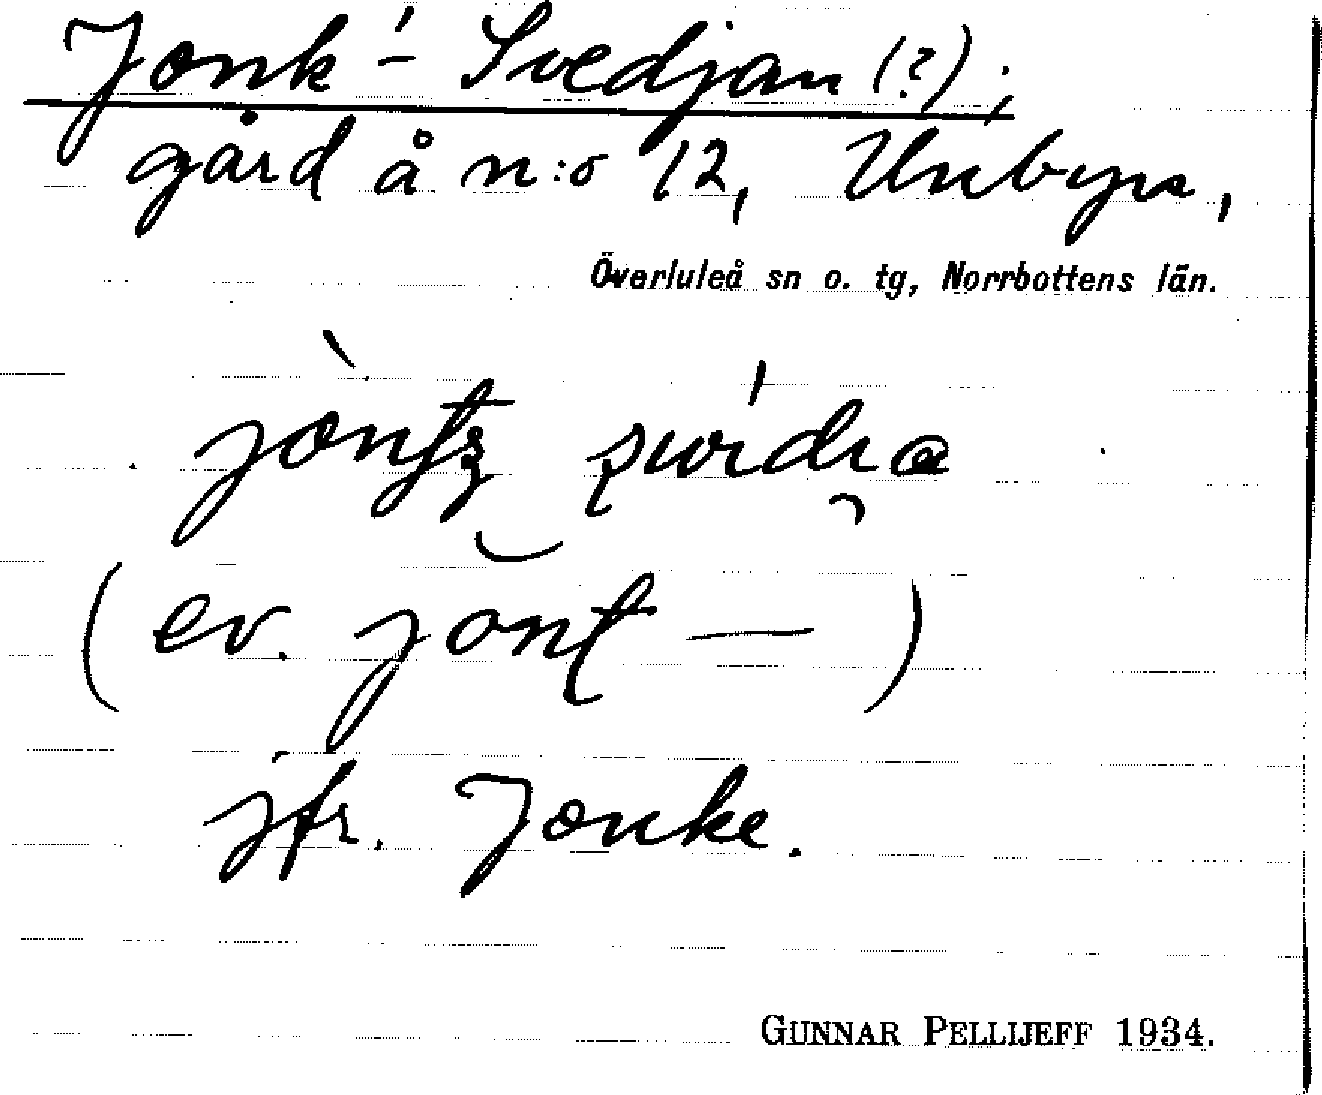 Jonk'-Svedjan (?);
gård å n:o 12, Unbyn,
Överluleå sn o. tg, Norrbottens län.
(ev. jont — )
jfr. Jonke.
GUNNAR PELLIJEFF 1934.